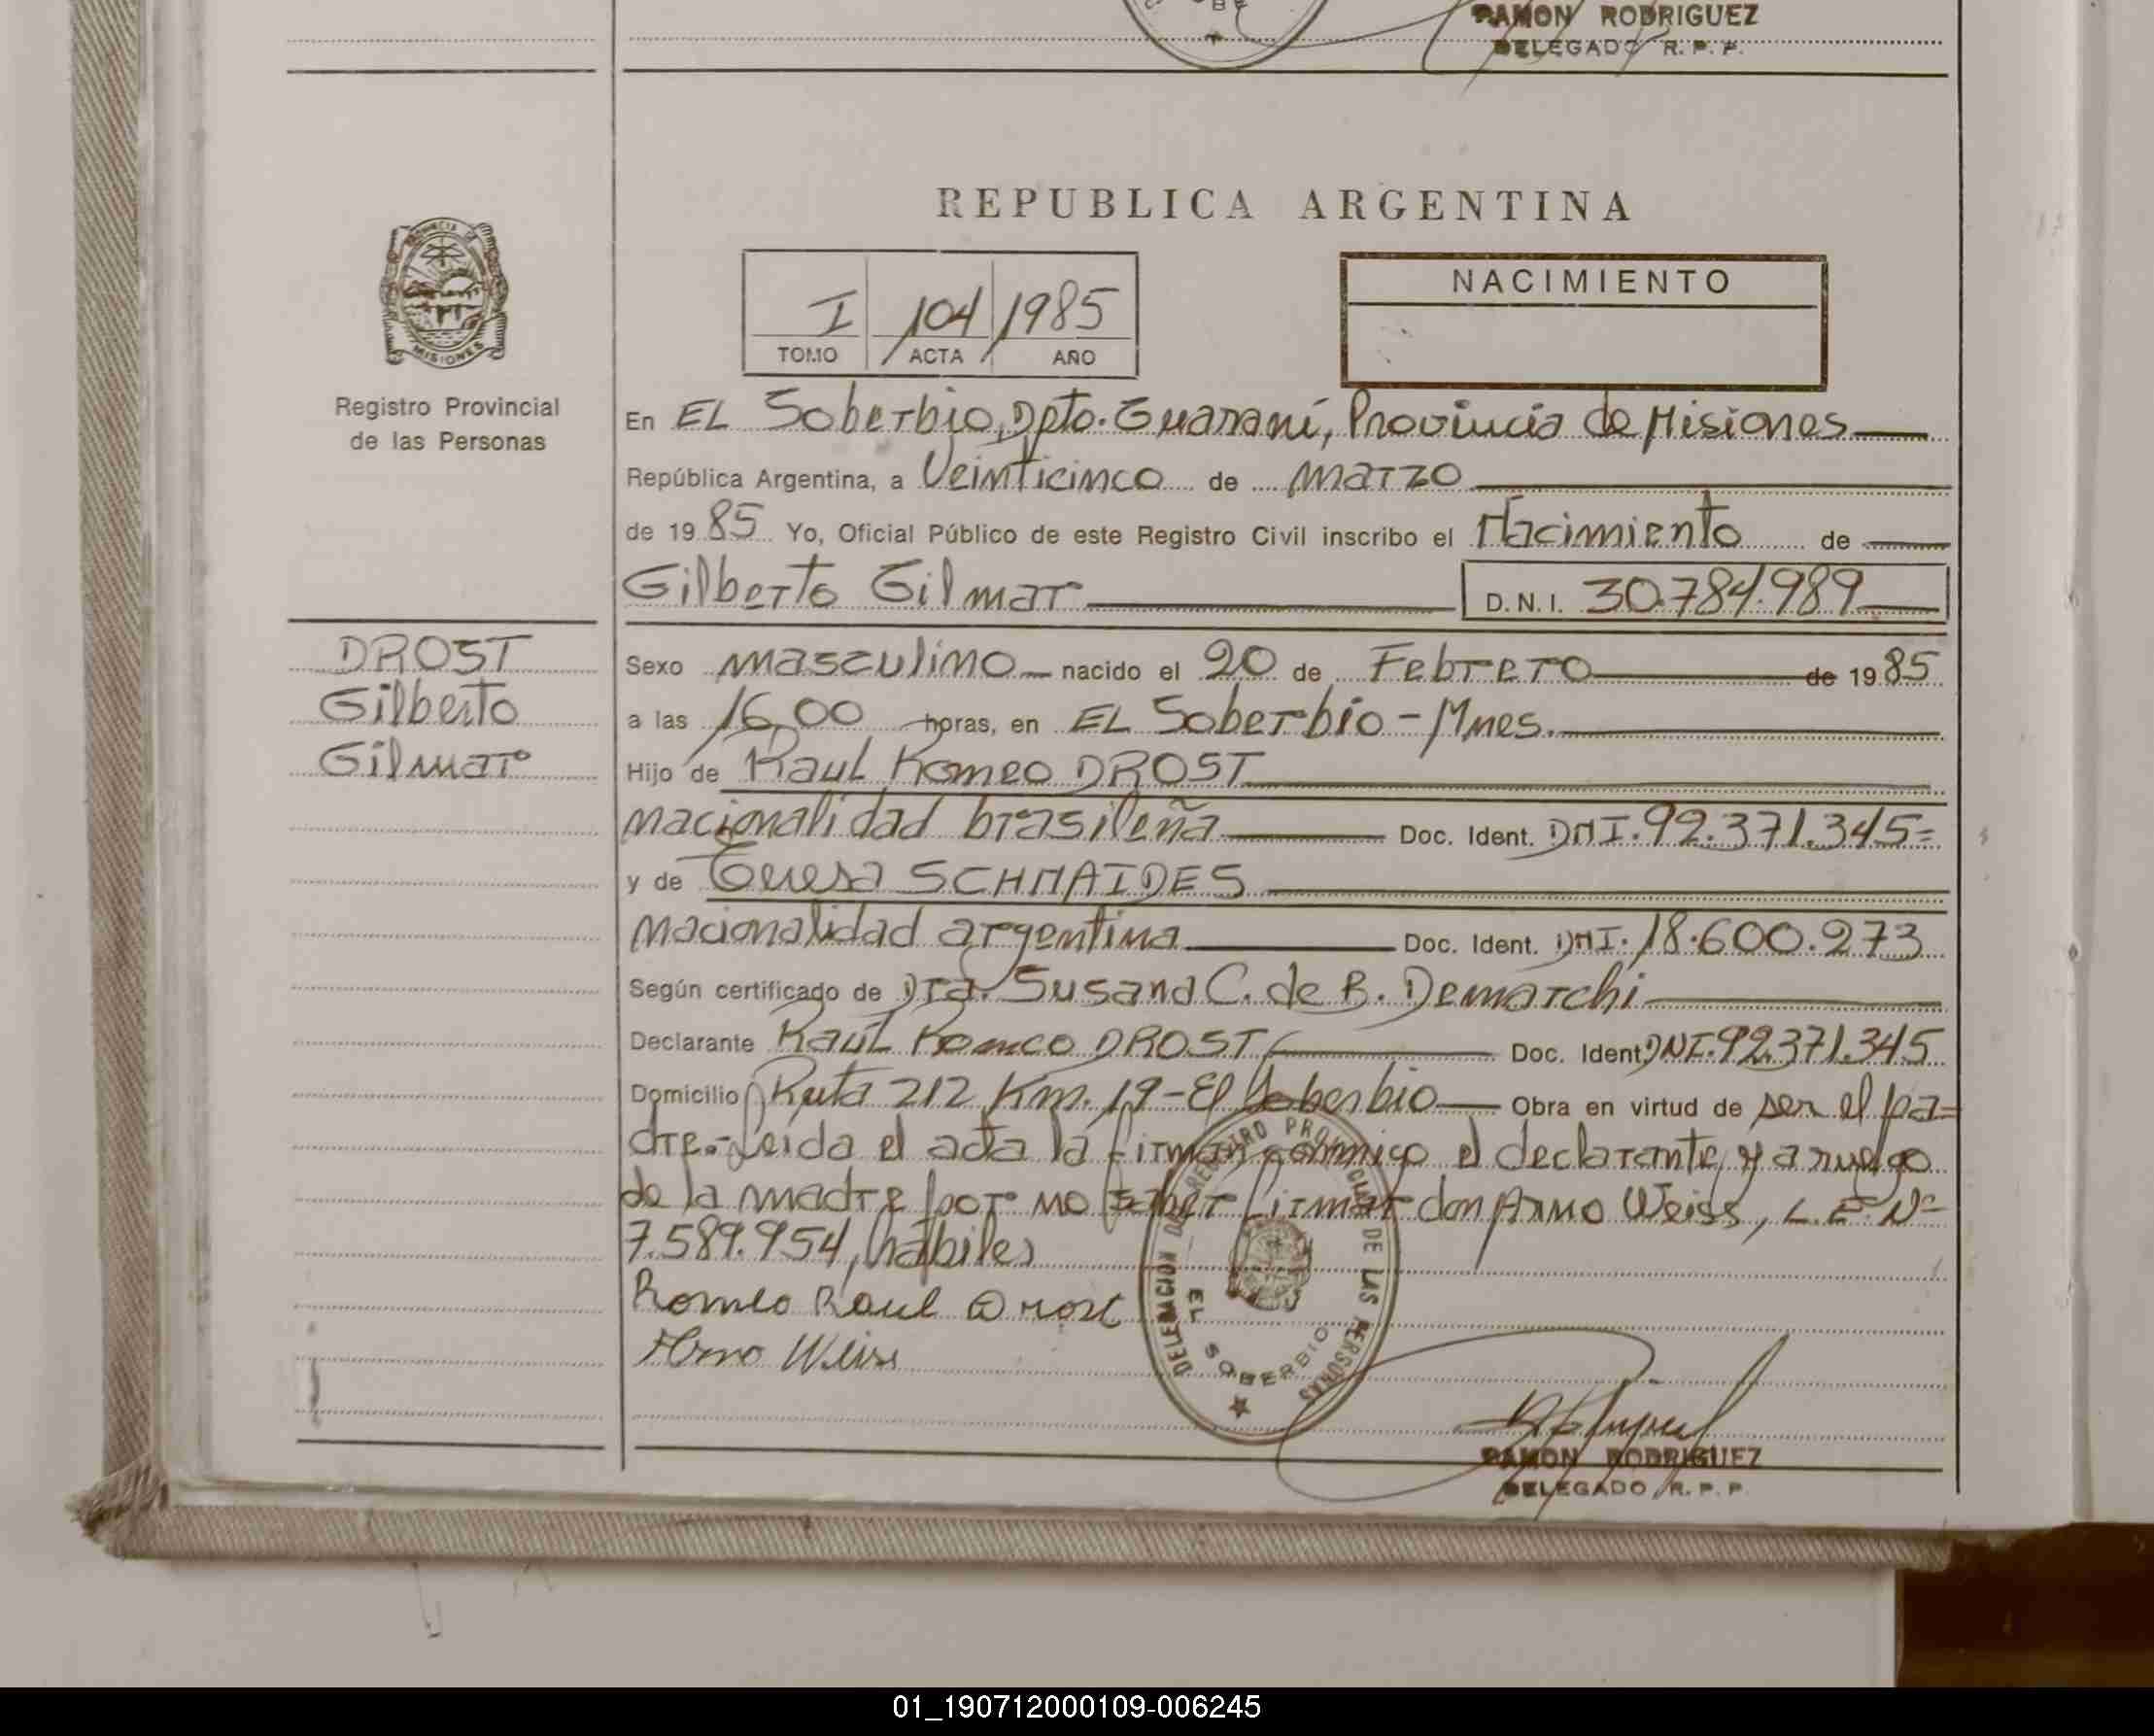 RAMON RODRIGUEZ
DELEGADO R. P. P.
REPUBLICA ARGENTINA
PROVINCIA DE
MISIONES
Registro Provincial
de las Personas
I 104 1985
TOMO ACTA AÑO
NACIMIENTO
En EL Soberbio, Dpto. Guaraní, Provincia de Misiones
República Argentina, a Veinticinco de marzo
de 1985 Yo, Oficial Público de este Registro Civil inscribo el Nacimiento de
Gilberto Gilmar D.N.I. 30.784.989
DROST
Gilberto
Gilmar
Sexo masculino nacido el 20 de Febrero de 1985
a las 16,00 horas, en EL Soberbio - Mnes.
Hijo de Raul Romeo DROST
nacionalidad brasileña Doc. Ident. DNI. 92.371.345=
y de Teresa SCHMAIDES
nacionalidad argentina Doc. Ident. DNI. 18.600.273
Según certificado de Dra. Susana C. de B. Demarchi
Declarante Raúl Romeo DROST Doc. Ident. DNI. 92.371.345
Domicilio Ruta 212 Km. 19-El Soberbio Obra en virtud de ser el pa=
dre.-Leída el acta la firman conmigo el declarante y a ruego
de la madre por no saber firmar don Arno Weiss, L.E. Nº
7.589.954, hábiles
Romeo Raul Drost
Arno Weiss
DELEGACION DEL REGISTRO PROVINCIAL DE LAS PERSONAS
EL SOBERBIO
RAMON RODRIGUEZ
DELEGADO R. P. P.
01_190712000109-006245